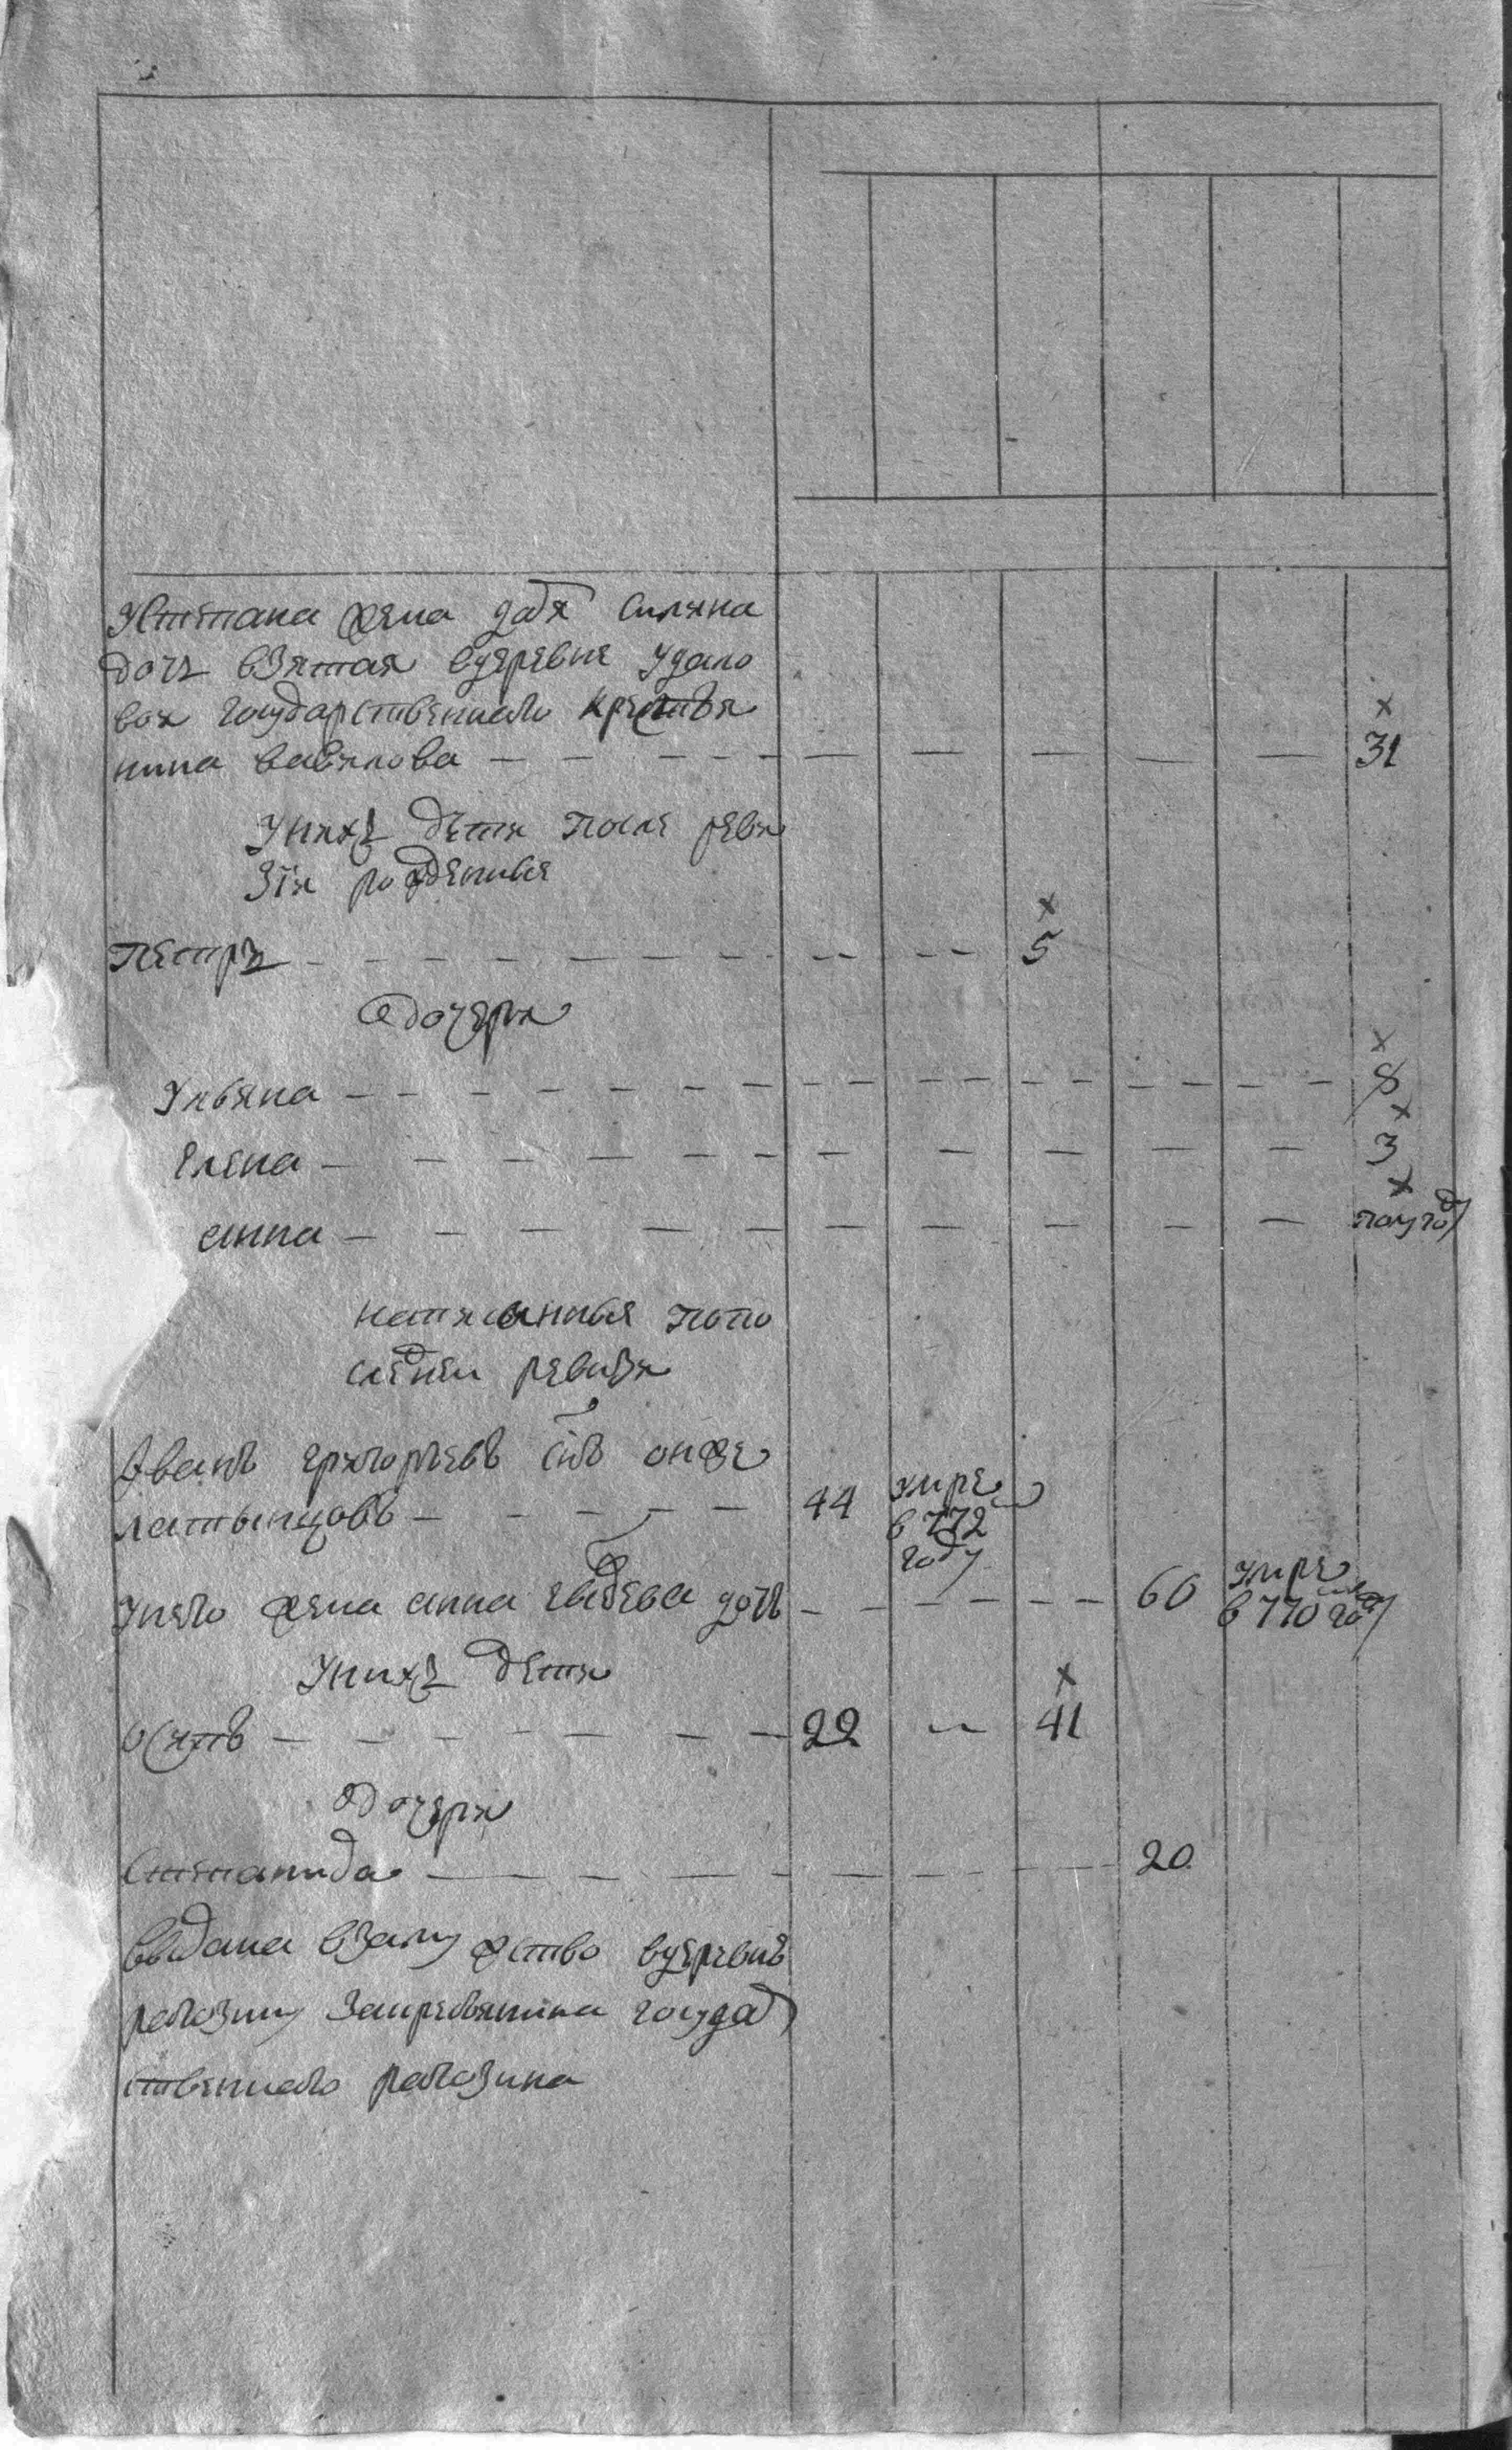 Устепана жена дарья силина
дочь взятая вдеревне удало
вои государственнаго крестья
нина вавилова — 31
Унихъ дети после реви
зіи рожденные
петръ — 5
Адочери
Ульяна — 8
Елена — 3
анна — полугоду
написанныя попо
следнеи ревизи
Иванъ григорьевъ снъ онже
латынцовъ — 44 умре
в 772
году
Унего жена анна дочь — 60 умре
в 770 году
Унихъ дети
осипъ — 22 — 41
Адочери
Степанида — 20
выдана взамужство вдеревню
рагозину закрестьянина государ
ственнаго рагозина